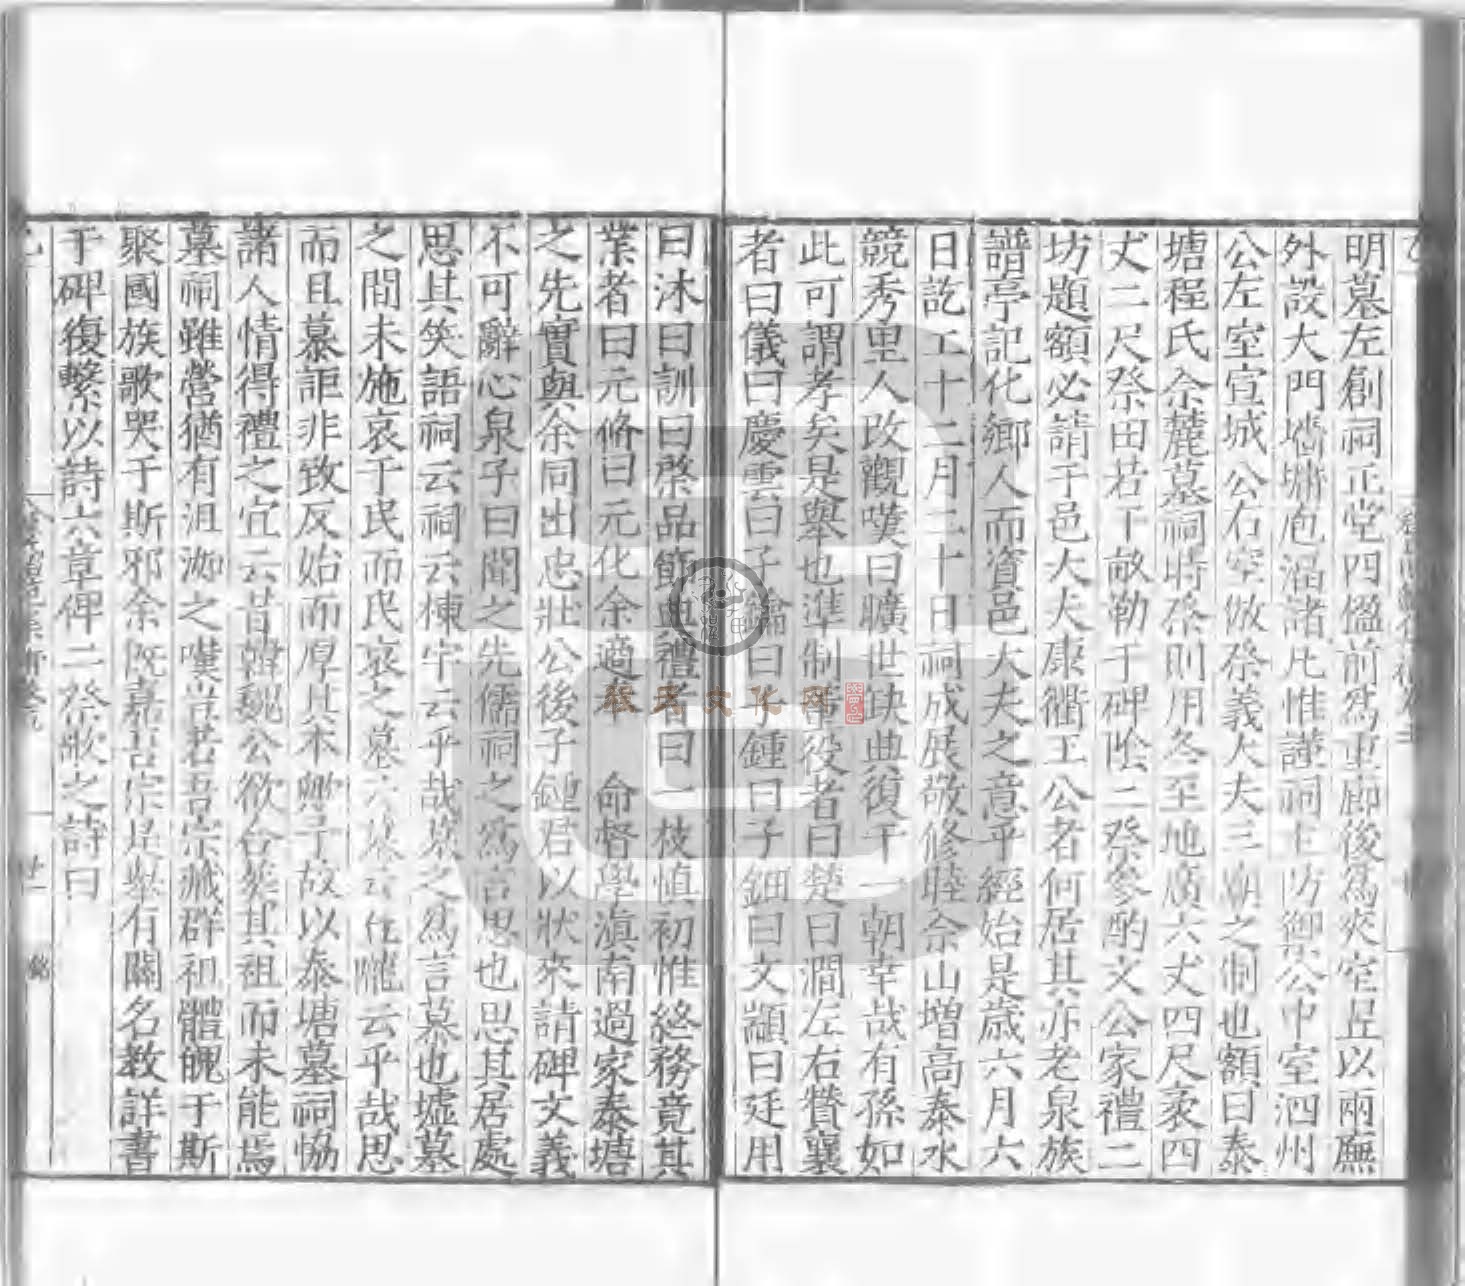 明墓左創祠正堂四楹前為重廊後為夾室昱以兩廡
外設大門墻墉庖湢諸凡惟謹祠主防禦公中室泗州
公左室宣城公右室倣祭義大夫三廟之制也額曰泰
塘程氏佘麓墓祠時祭則用冬至地廣六丈四尺袤四
丈二尺祭田若干畝勒于碑陰二祭參酌文公家禮二
坊題額必請于邑大夫康衢王公者何居其亦老泉族
譜亭記化鄉人而資邑大夫之意乎經始是歲六月六
日訖工十二月二十日祠成展敬修睦佘山增高泰水
競秀里人改觀嘆曰曠世缺典復于一朝幸哉有孫如
此可謂孝矣是舉也準制鄙役者曰楚曰澗左右贊襄
者曰儀曰慶雲曰子 曰子鍾曰子鈿曰文顓曰廷用
曰沐曰訓曰棨品節典禮者曰一枝慎初惟終務竟其
業者曰元脩曰元化余適奉 命督學滇南過家泰塘
之先實與余同出忠壯公後子鍾君以狀來請碑文義
不可辭心泉子曰聞之先儒祠之為言思也思其居處
思其笑語祠云祠云棟宇云乎哉墓之為言慕也墟墓
之間未施哀于民而民哀之墓云墓云丘隴云乎哉思
而且慕詎非致反始而厚其本與予故以泰塘墓祠恊
諸人情得禮之宜云昔韓魏公欲合葬其祖而未能焉
墓祠雖營猶有沮洳之嘆豈若吾宗藏群祖體魄于斯
聚國族歌哭于斯邪余既嘉吾宗是舉有關名教詳書
于碑復繫以詩六章俾二祭歌之詩曰
張氏文化网